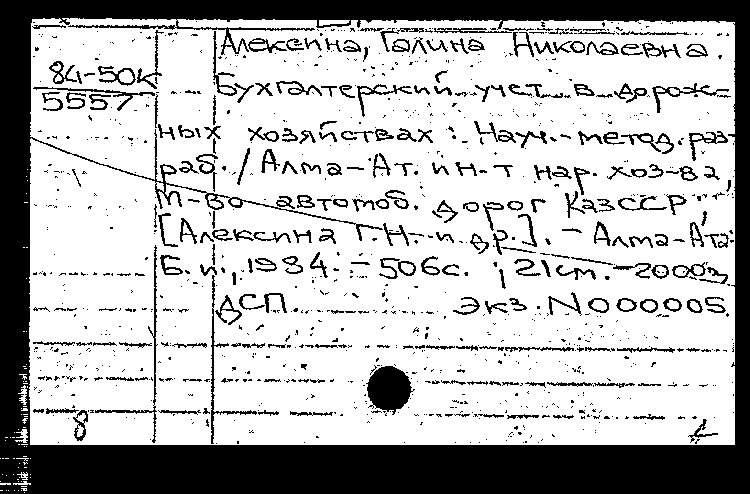 Алексина, Галина Николаевна.
84-50к
5557
Бухгалтерский учет в дорож-
ных хозяйствах : Науч.-метод. раз-
раб. / Алма-Ат. ин-т нар. хоз-ва,
М-во автомоб. дорог КазССР ;
[Алексина Г.Н. и др.]. - Алма-Ата:
Б. и., 1984. - 506с. ; 21см. - 2000э,
ДСП. Экз. N000005.
8